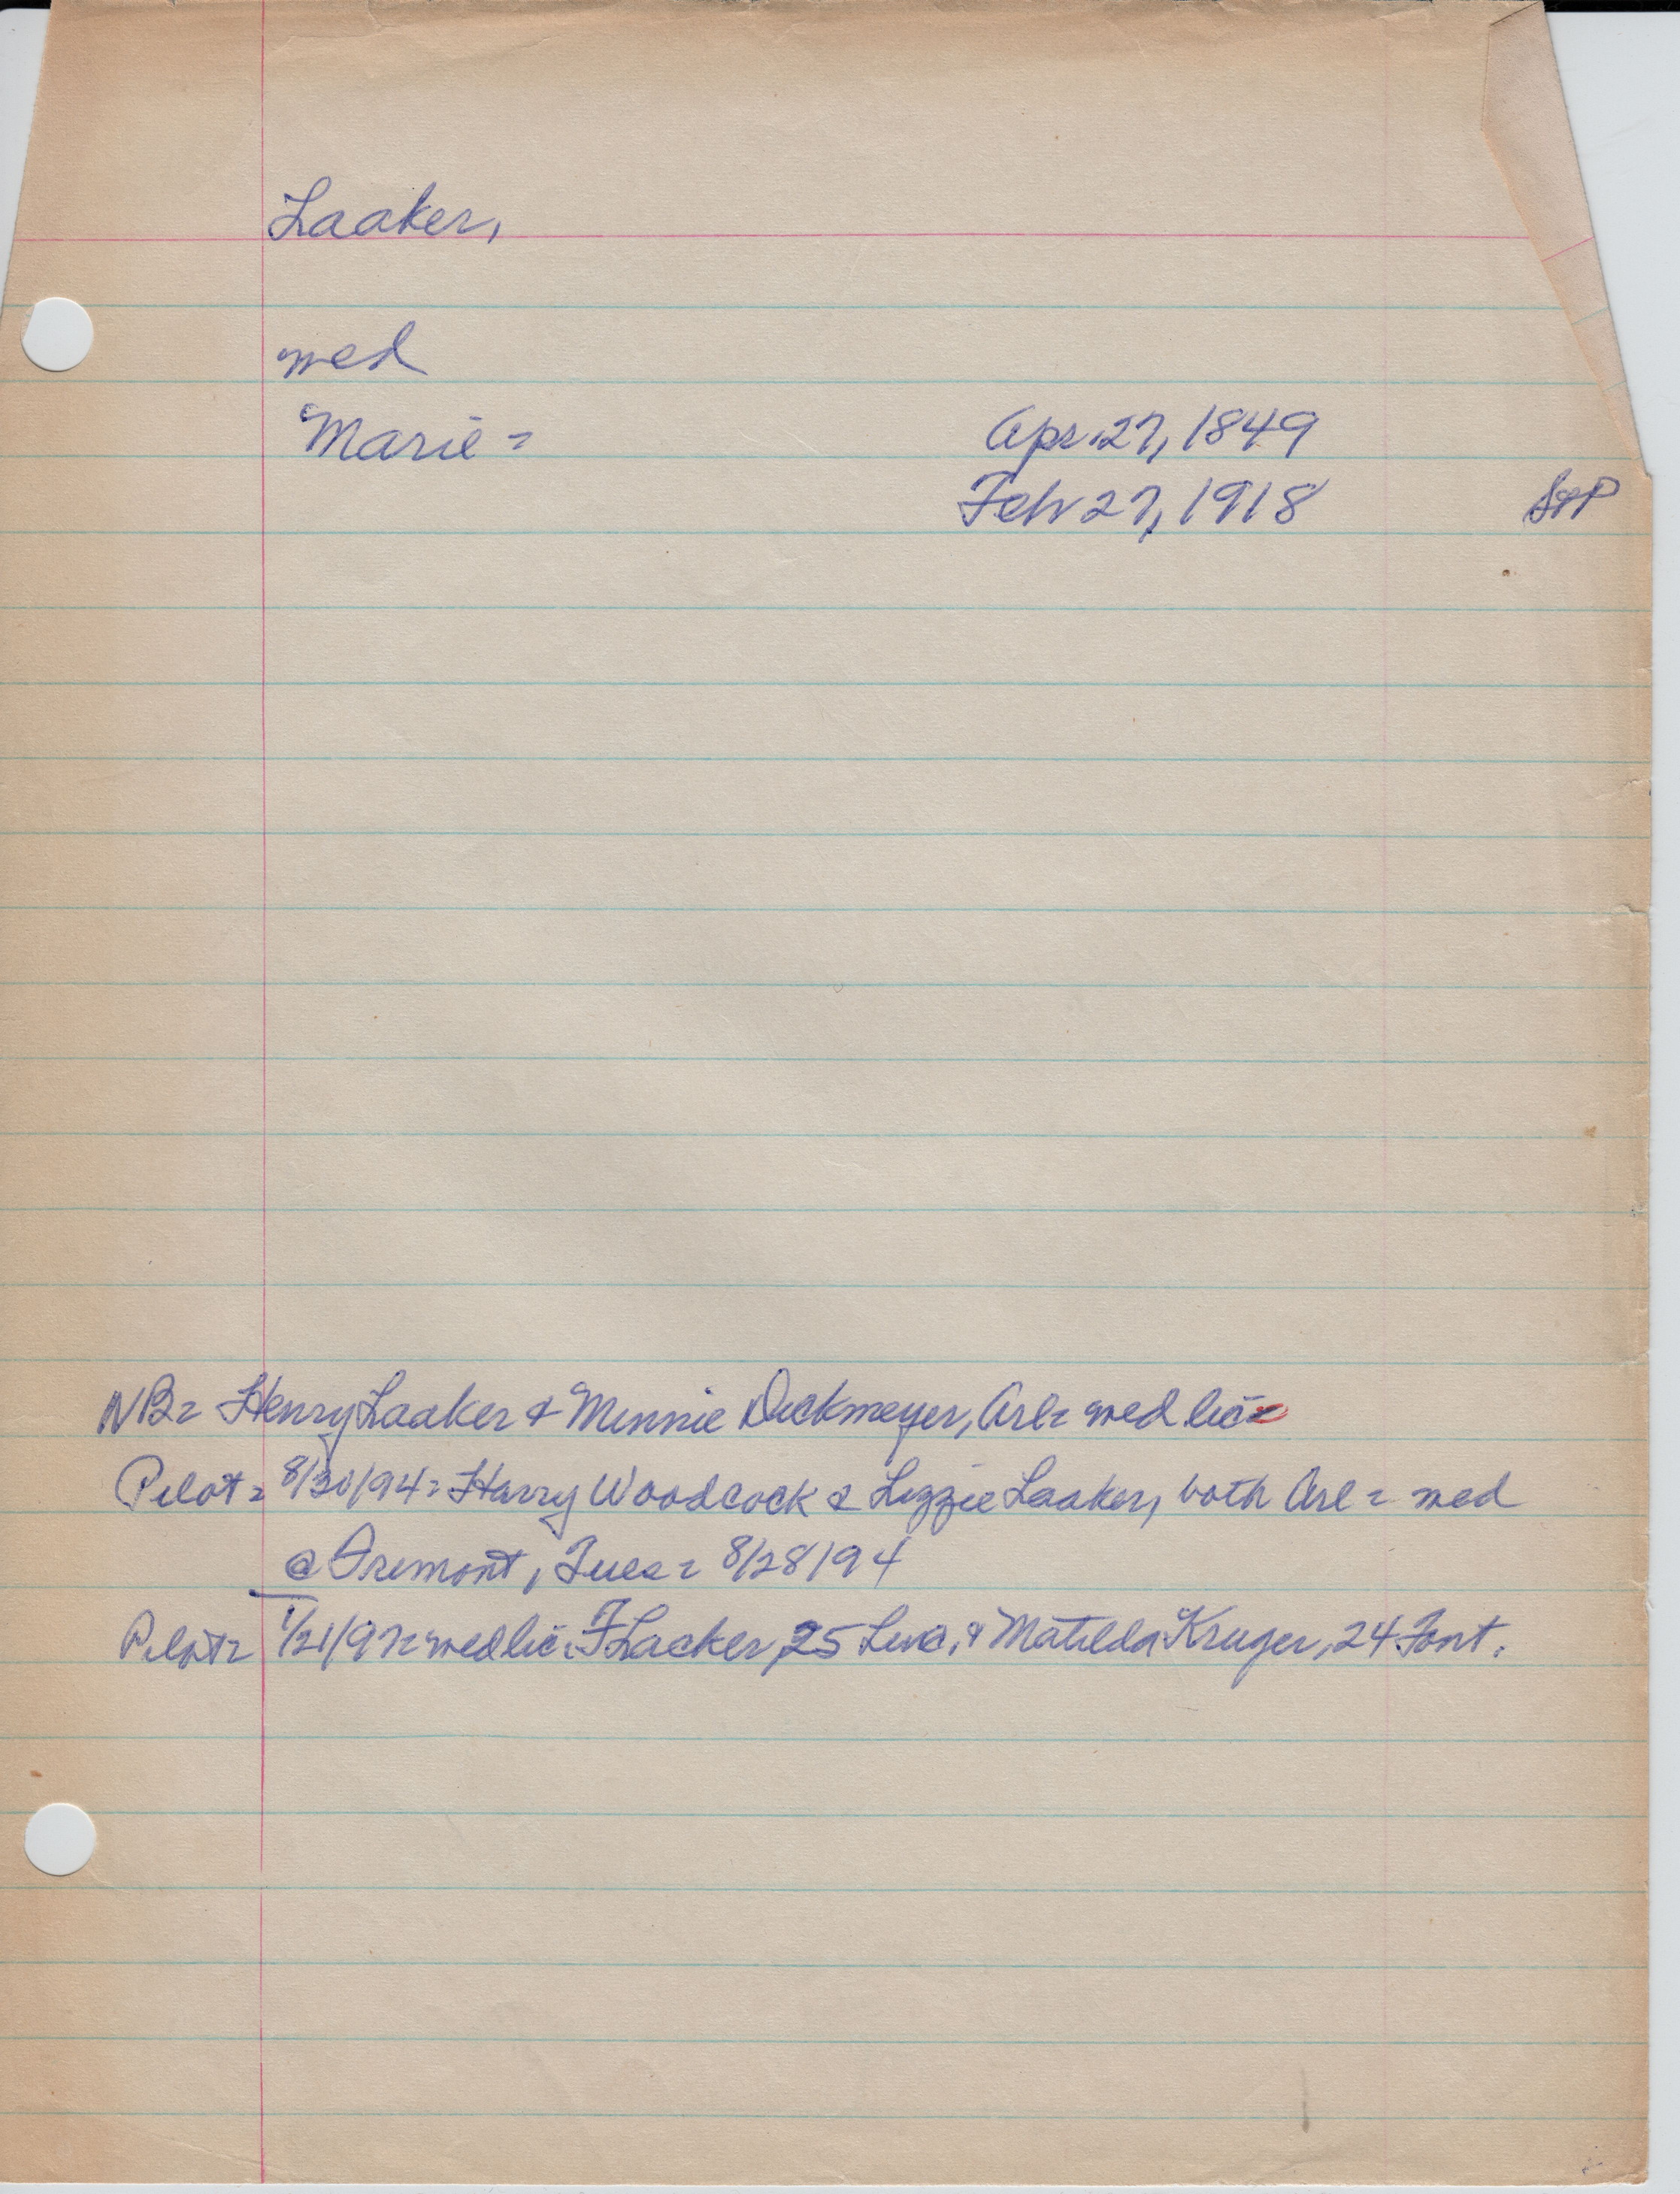 Laaker,
med
Marie = Apr. 27, 1849
Feb 27, 1918 StP
NB= Henry Laaker & Minnie Dickmeyer, Arl= med lic=
Pilot= 8/30/94= Harry Woodcock & Lizzie Laaker, both Arl = med
@ Fremont, Tues = 8/28/94
Pilot= 1/21/97= med lic. F Laaker, 25 & Matilda Kruger, 24 Font.